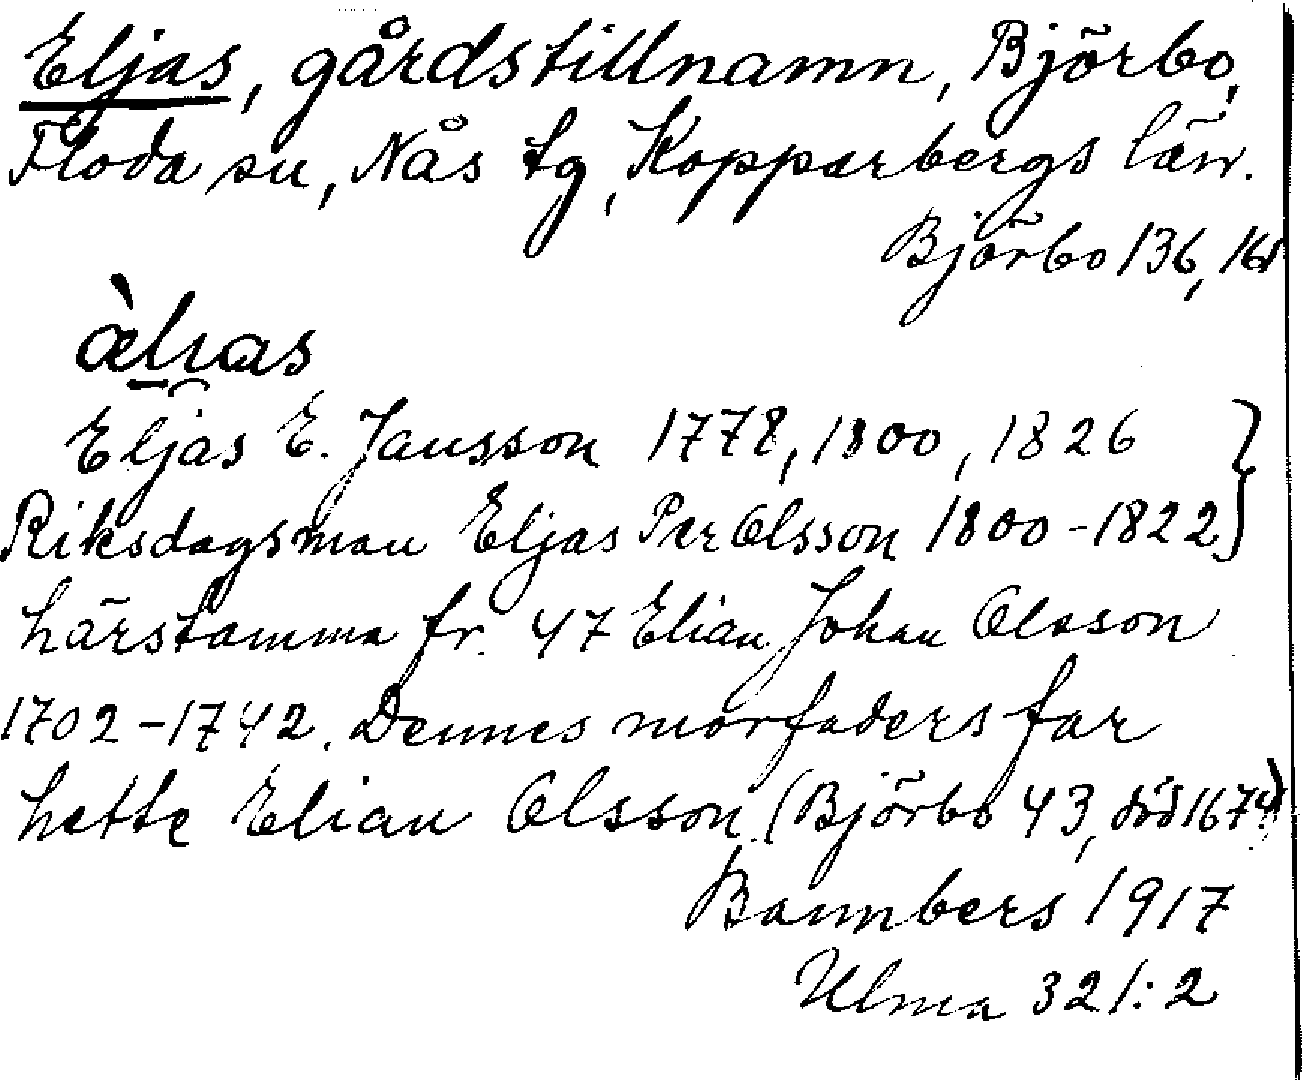 Eljas, gårdstillnamn, Björbo,
Floda sn, Nås tg, Kopparbergs län.
Björbo 136, 161
æ̀lias
Eljas E. Jansson 1778, 1800, 1826 }
Riksdagsman Eljas Per Olsson 1800-1822 }
härstamma fr. 47 Elian Johan Olsson
1702-1742. Dennes morfaders far
hette Elian Olsson (Björbo 43, död 1674)
Bannbers 1917
Ulma 321:2